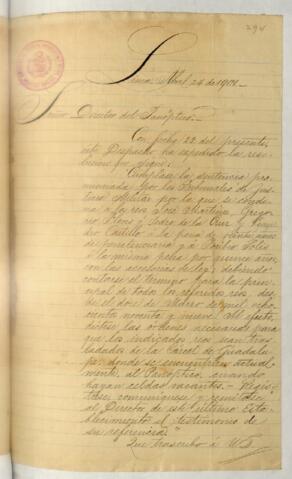 294
Lima, Abril 24 de 1901.
Señor Director del Panóptico.
Con fecha 22 del presente,
este Despacho ha expedido la reso-
lucion que sigue:
Cúmplase la sentencia pro-
nunciada por los Tribunales de Jus-
ticia Militar por la que se conde-
na á los reos José Martinez, Grego-
rio Pleno, Pedro de la Cruz y
Castillo á la pena de años
de penitenciaria y á Solis
á la misma pena por quince años
con las accesorias de ley; debiendo
contarse el termino para la prin-
cipal de todos los referidos reos des-
de el doce de Marzo de mil ocho-
cientos noventa y nueve. Al efecto,
dictese las órdenes necesarias para
que los indicados reos sean tras-
ladados de la Carcel de Guadalu-
pe donde se encuentran actual-
mente, al Panóptico, cuando
hayan celdas vacantes. - Regis-
trese, comuníquese y remitase
al Director de este último Esta-
blecimiento el testimonio de
su referencia."
Que trascribo á US.